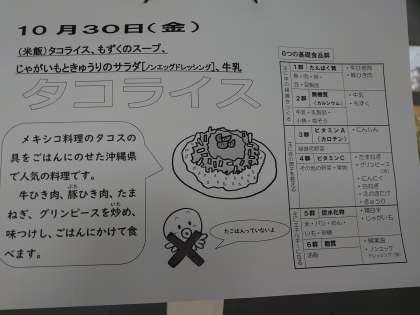 10月30日(金)
(米飯)タコライス、もずくのスープ、
じゃがいもときゅうりのサラダ[ノンエッグドレッシング]、牛乳
タコライス
メキシコ料理のタコスの
具をごはんにのせた沖縄県
で人気の料理です。
牛ひき肉、豚ひき肉、たま
ねぎ、グリンピースを炒め、
味つけし、ごはんにかけて食
べます。
たこは入っていないよ
6つの基礎食品群
1群 たんぱく質
魚・肉・卵・
豆・豆製品
・牛ひき肉
・豚ひき肉
2群 無機質
(カルシウム)
牛乳・乳製品・
小魚・海そう
・牛乳
・もずく
3群 ビタミンA
(カロテン)
緑黄色野菜
・にんじん
4群 ビタミンC
その他の野菜・果物
・たまねぎ
・グリンピース
・にんにく
・えのきだけ
・きゅうり
5群 炭水化物
米・パン・めん・
いも・砂糖
・精白米
・じゃがいも
6群 脂質
油脂
・ノンエッグ
ドレッシング